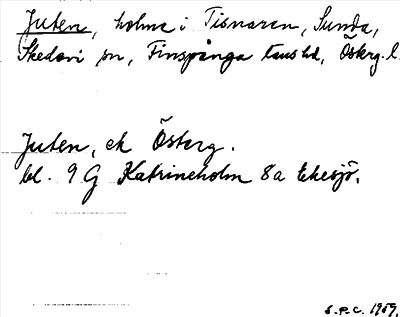 Juten, holme i Tisnaren, Sunda,
Skedevi sn, Finspånga läns hd, Österg. l.
Juten, ek Österg.
bl. 9 G Katrineholm 8a Ekesjö.
S.P.C. 1959.